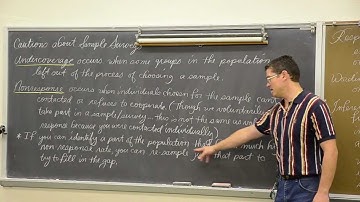 Cautions about Sample Surveys
Undercoverage occurs when some groups in the population
left out of the process of choosing a sample.
Nonresponse occurs when individuals chosen for the sample can't
contacted or refuses to cooperate (Though we voluntarily
take part in a sample/survey... this is not the same as
response because you were contacted individually)
* If you can identify a part of the population that much hi
non response rate, you can re-sample that part to
try to fill in the gap.
Resp